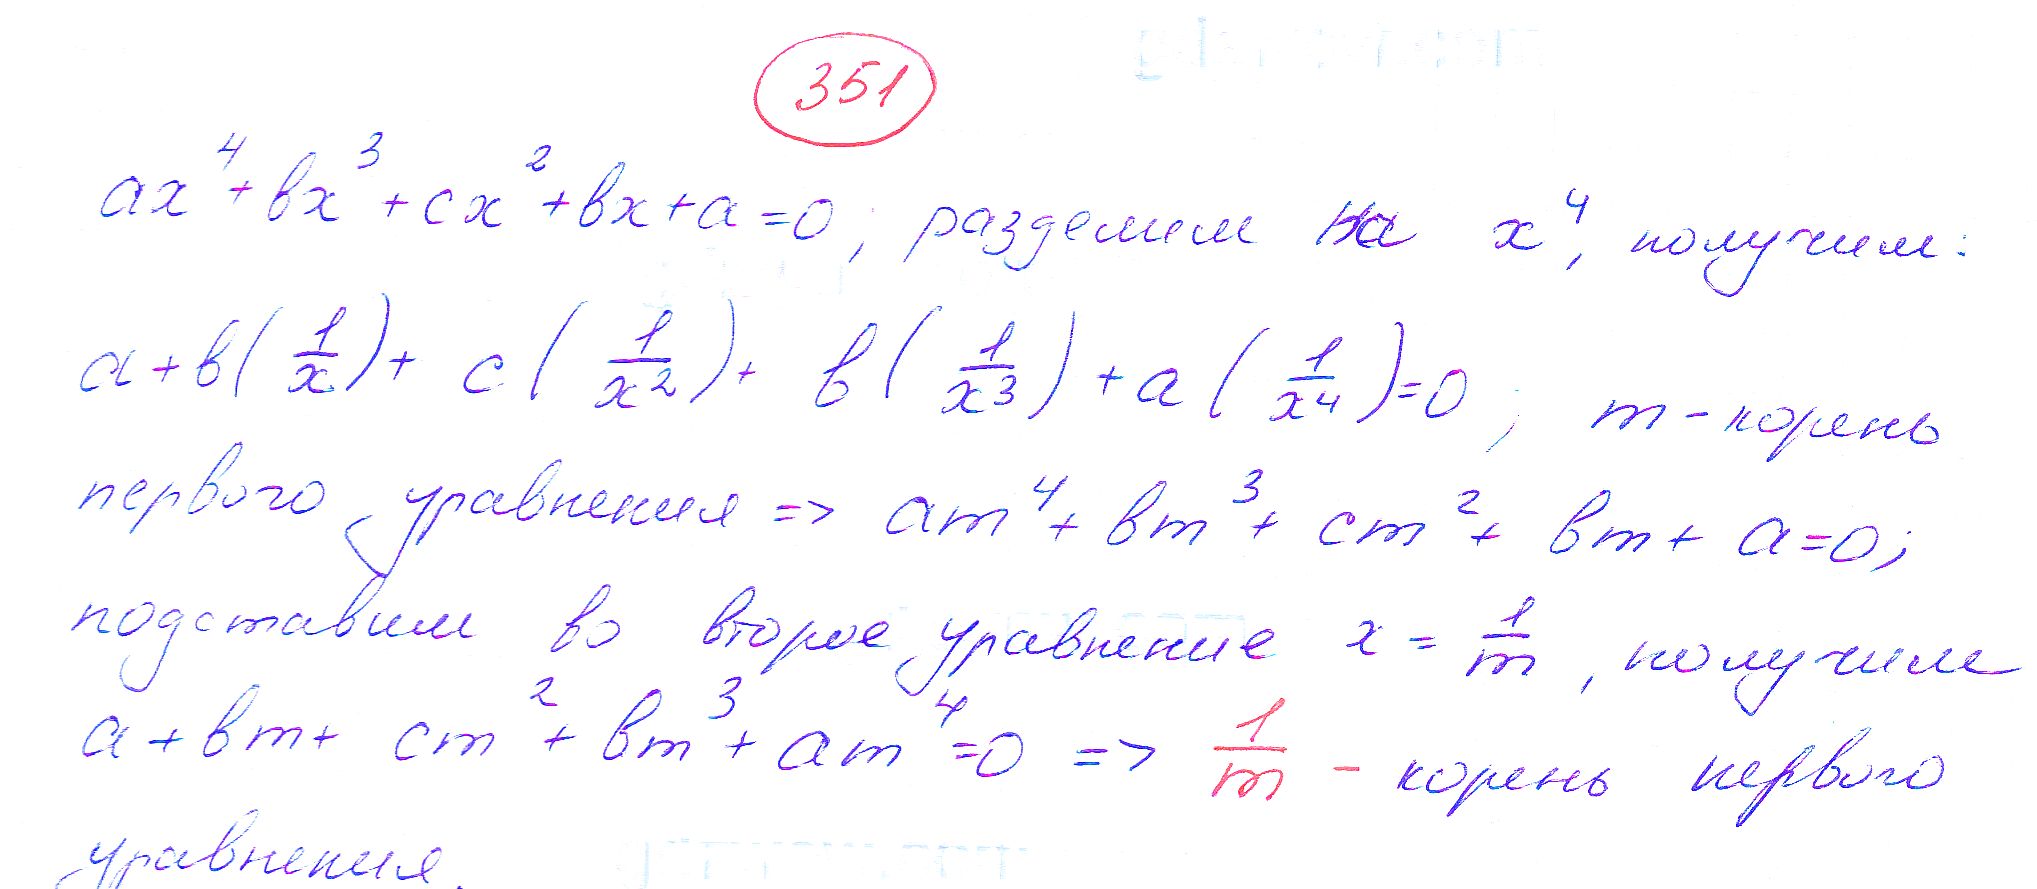 351
ax⁴+вx³+cx²+вx+a=0; разделим на x⁴, получим:
a+в(1/x)+c(1/x²)+в(1/x³)+a(1/x⁴)=0; m-корень
первого уравнения => am⁴+вm³+cm²+вm+a=0;
подставим во второе уравнение x=1/m, получим
a+вm+cm²+вm³+am⁴=0 => 1/m - корень первого
уравнения.